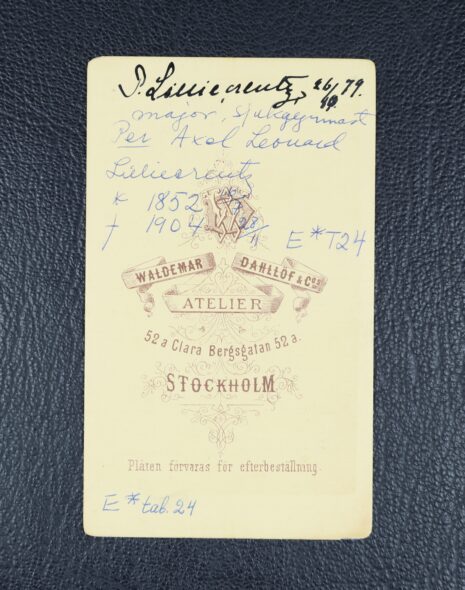 P. Lilliecreutz, 26/10 79.
major, sjukgymnast
Per Axel Leonard
Lilliecreutz
* 1852
† 1904 28/11
E*T24
WALDEMAR DAHLLÖF & Co:s
ATELIER
52 a Clara Bergsgatan 52 a.
STOCKHOLM
Plåten förvaras för efterbeställning.
E* tab. 24